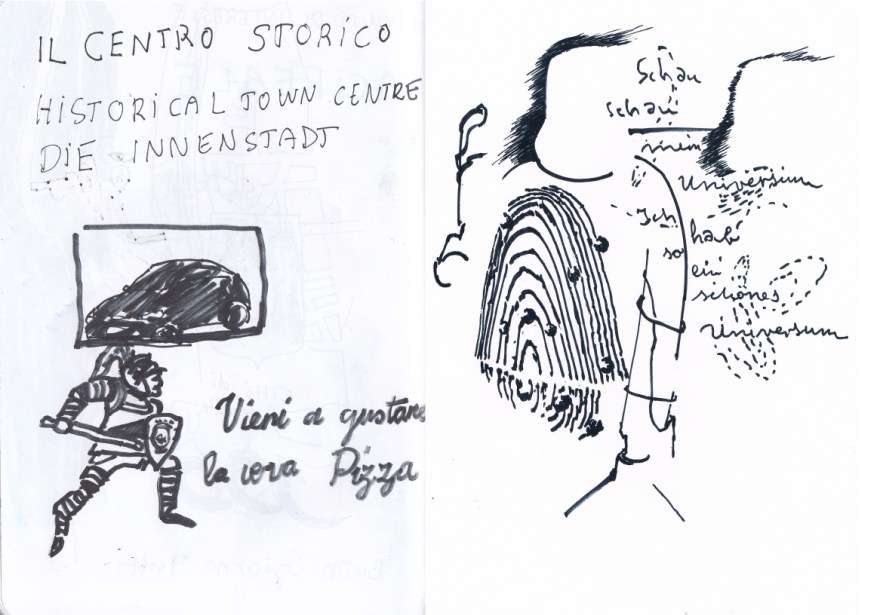 IL CENTRO STORICO
HISTORICAL TOWN CENTRE
DIE INNENSTADT
Vieni a gustare
la vera Pizza
Schau
schau
mein
Universum
Ich
hab'
so
ein
schönes
Universum